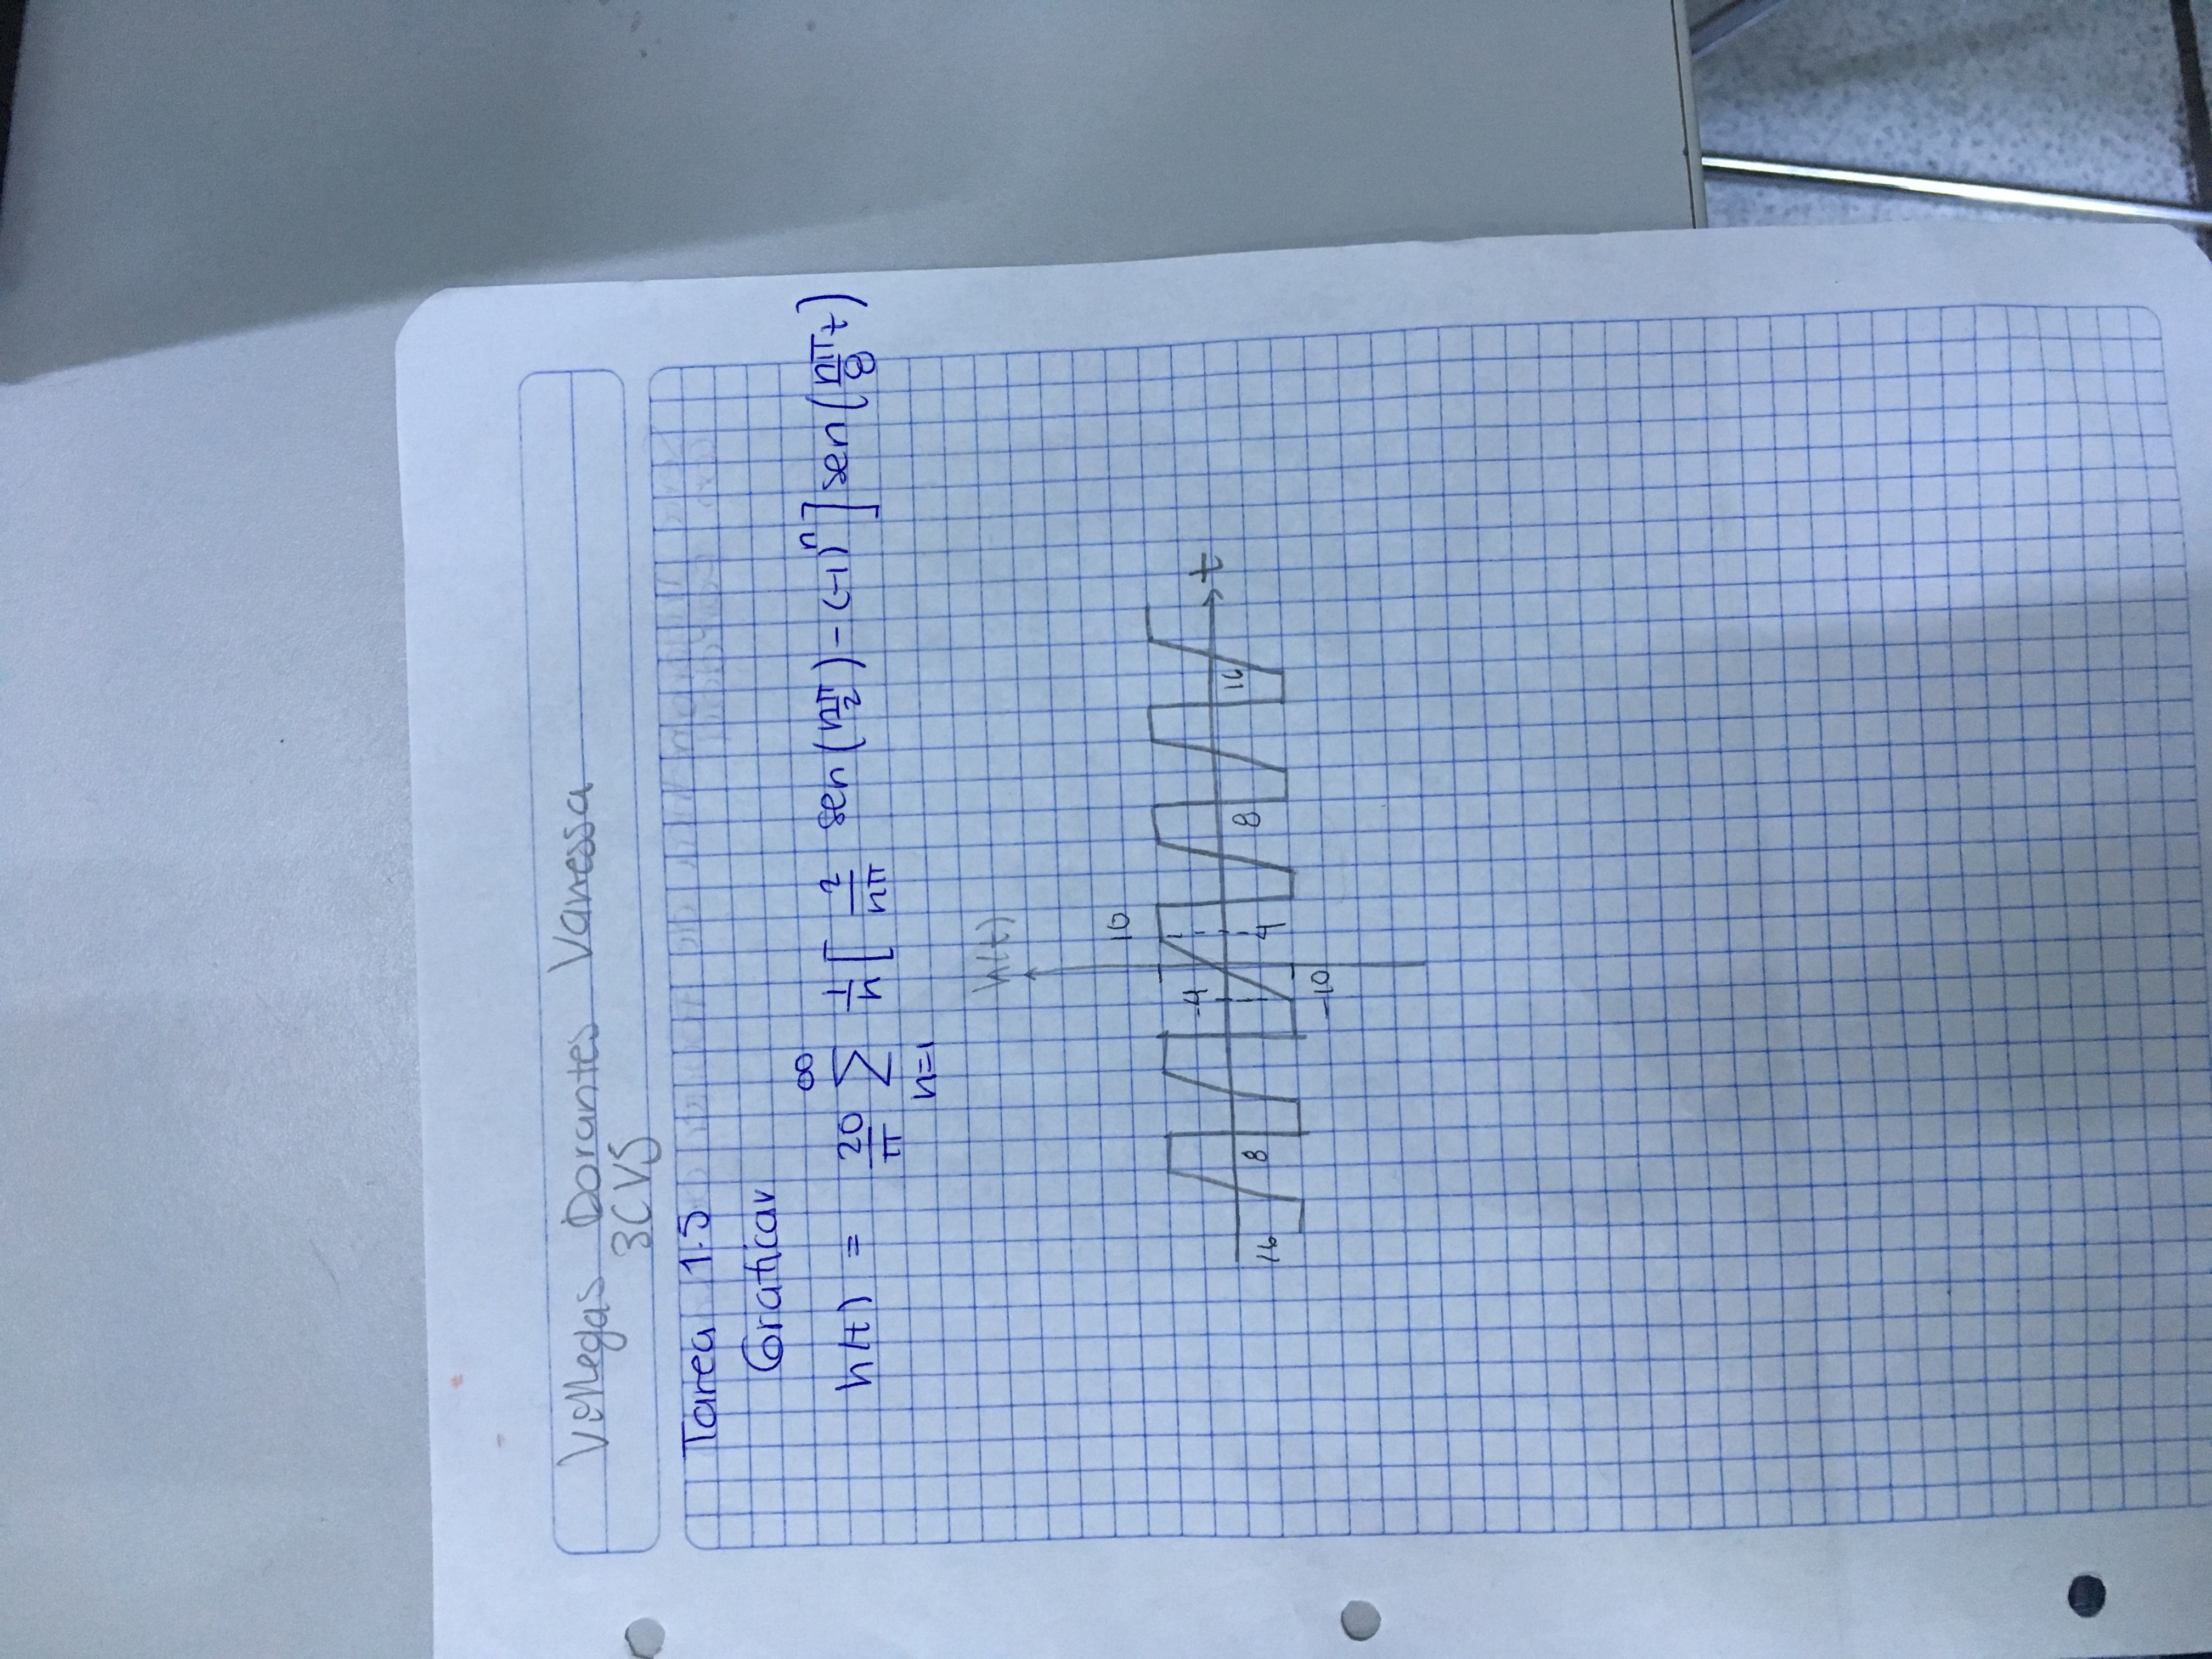 Villegas Dorantes Vanessa
3CV5
Tarea 1.5
Graficar
h(t) = 20/π ∞ Σ n=1 1/n [ 2/nπ sen(nπ/2) - (-1)^n ] sen(nπ/8 t)
h(t)
10
-4
t
16 8 4 8 16
-10